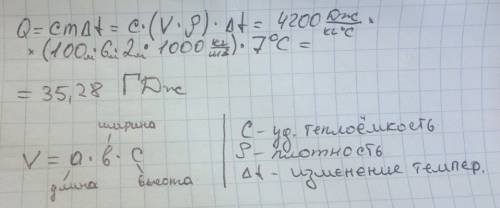 Q = cmΔt = c·(V·ρ)·Δt = 4200 Дж/кг°C ×
× (100м·6м·2м·1000 кг/м3)·7°C =
= 35,28 ГДж
ширина
V = a·b·c
длина
высота
C – уд. теплоёмкость
ρ – плотность
Δt – изменение темпер.